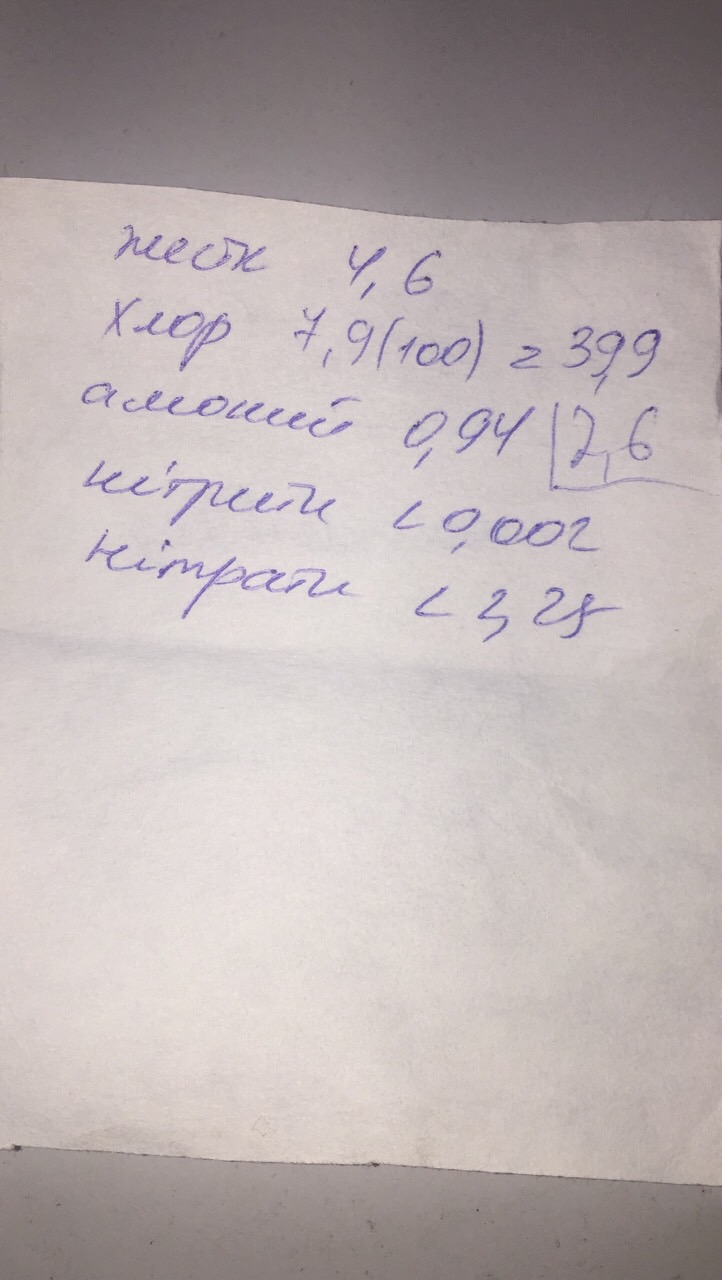 жестк 4,6
хлор 7,9(100) = 39,9
амоний 0,94 2,6
нітрити < 0,002
нітрати < 2,25